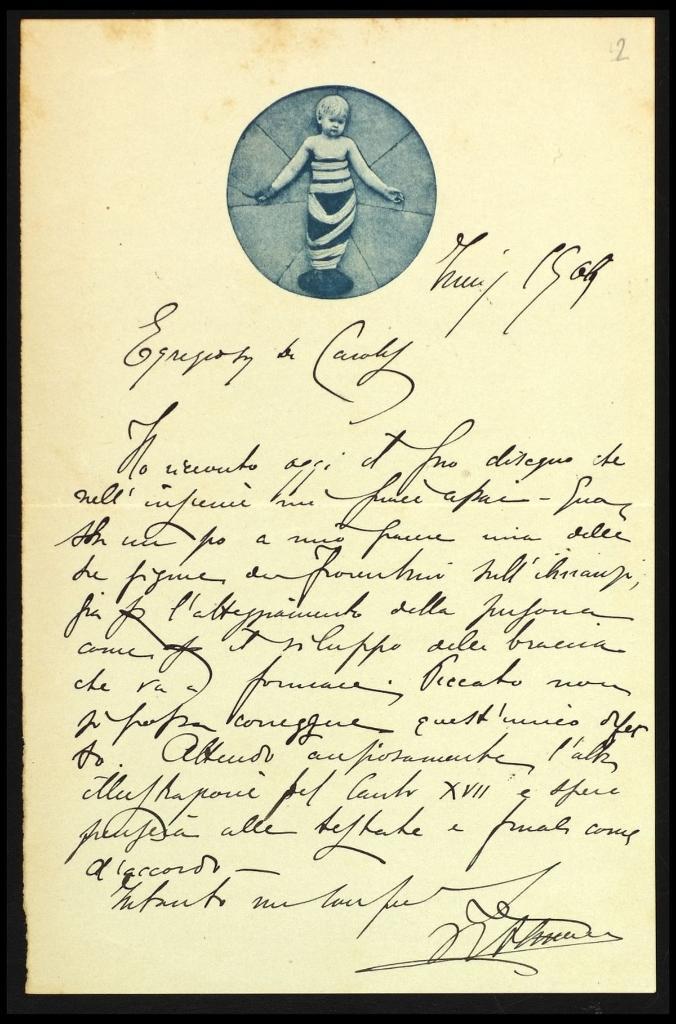 2
1904
Egregio Sr De Carolis
Ho ricevuto oggi il suo disegno che
nell'insieme mi piace assai - Gua
sta un po' a mio parere una delle
tre figure dei fiorentini sull'innanzi,
sia p l'atteggiamento della persona
come p il sviluppo delle braccia
che va a formare. Peccato non
si possa correggere quest'unico difet
to. Attendo ansiosamente l'altra
illustrazione del Canto XVII e spero
penserà alle testate e finali come
d'accordo -
Intanto mi